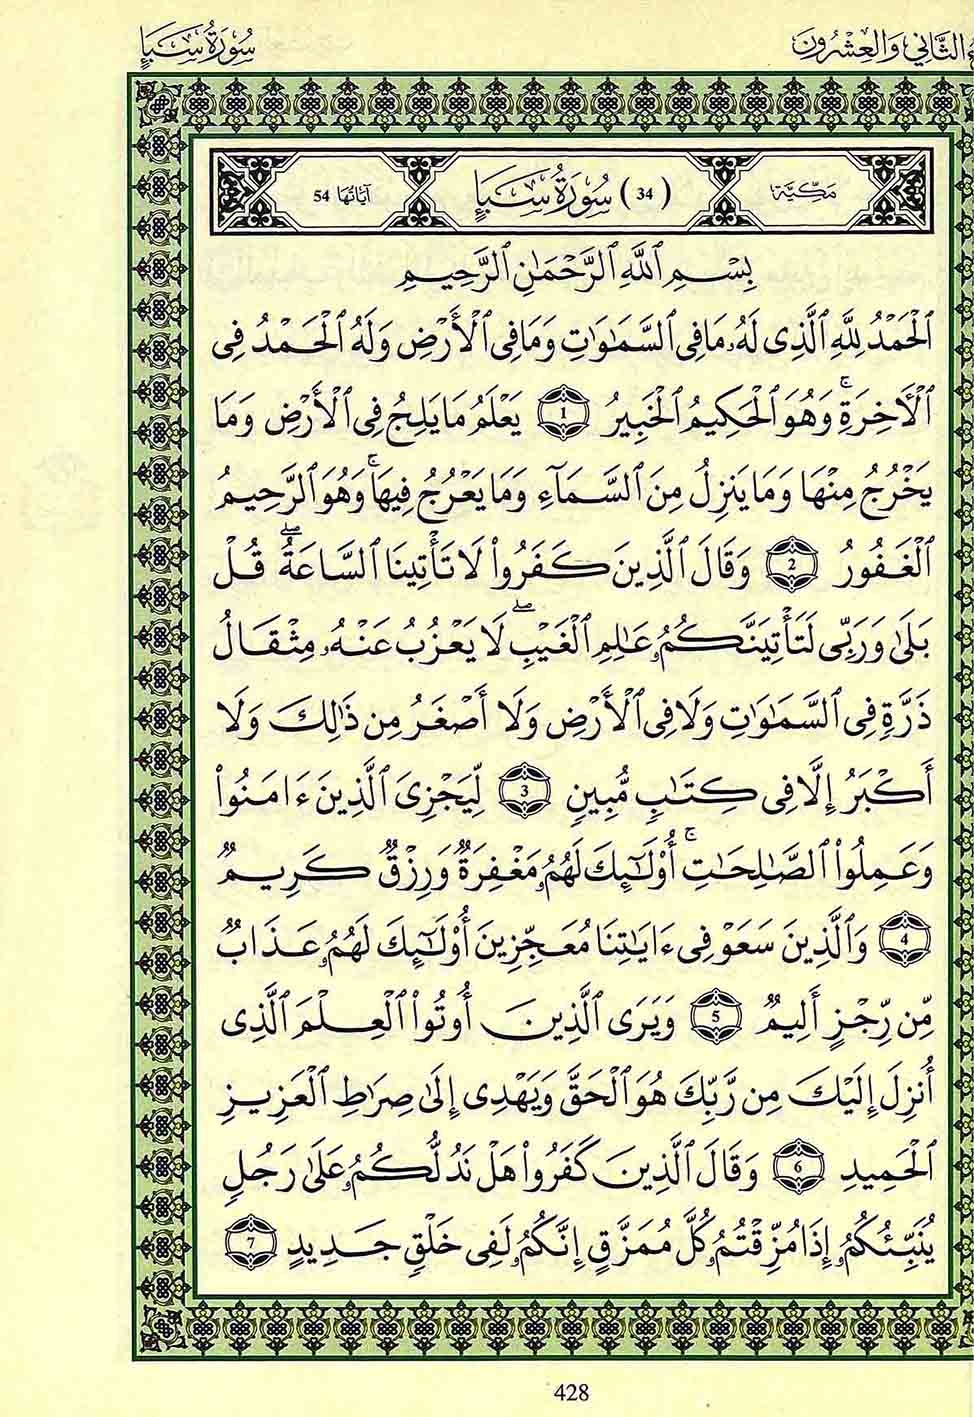 الثَّانِي وَالْعِشْرُونَ
سُورَةُ سَبَإٍ
مَكِّيَّة
(34) سُورَةُ سَبَإٍ
آيَاتُهَا 54
بِسْمِ ٱللَّهِ ٱلرَّحْمَٰنِ ٱلرَّحِيمِ
ٱلْحَمْدُ لِلَّهِ ٱلَّذِى لَهُۥ مَا فِى ٱلسَّمَٰوَٰتِ وَمَا فِى ٱلْأَرْضِ وَلَهُ ٱلْحَمْدُ فِى
ٱلْأَخِرَةِ ۚ وَهُوَ ٱلْحَكِيمُ ٱلْخَبِيرُ 1 يَعْلَمُ مَا يَلِجُ فِى ٱلْأَرْضِ وَمَا
يَخْرُجُ مِنْهَا وَمَا يَنزِلُ مِنَ ٱلسَّمَآءِ وَمَا يَعْرُجُ فِيهَا ۚ وَهُوَ ٱلرَّحِيمُ
ٱلْغَفُورُ 2 وَقَالَ ٱلَّذِينَ كَفَرُوا۟ لَا تَأْتِينَا ٱلسَّاعَةُ ۖ قُلْ
بَلَىٰ وَرَبِّى لَتَأْتِيَنَّكُمُۥ عَٰلِمِ ٱلْغَيْبِ ۖ لَا يَعْزُبُ عَنْهُۥ مِثْقَالُ
ذَرَّةٍ فِى ٱلسَّمَٰوَٰتِ وَلَا فِى ٱلْأَرْضِ وَلَا أَصْغَرُ مِن ذَٰلِكَ وَلَا
أَكْبَرُ إِلَّا فِى كِتَٰبٍ مُّبِينٍ 3 لِّيَجْزِىَ ٱلَّذِينَ ءَامَنُوا۟
وَعَمِلُوا۟ ٱلصَّٰلِحَٰتِ ۚ أُو۟لَٰٓئِكَ لَهُمُۥ مَغْفِرَةٌ وَرِزْقٌ كَرِيمٌ
4 وَٱلَّذِينَ سَعَوْ فِى ءَايَٰتِنَا مُعَجِّزِينَ أُو۟لَٰٓئِكَ لَهُمُۥ عَذَابٌ
مِّن رِّجْزٍ أَلِيمٌ 5 وَيَرَى ٱلَّذِينَ أُوتُوا۟ ٱلْعِلْمَ ٱلَّذِى
أُنزِلَ إِلَيْكَ مِن رَّبِّكَ هُوَ ٱلْحَقَّ وَيَهْدِى إِلَىٰ صِرَٰطِ ٱلْعَزِيزِ
ٱلْحَمِيدِ 6 وَقَالَ ٱلَّذِينَ كَفَرُوا۟ هَلْ نَدُلُّكُمُۥ عَلَىٰ رَجُلٍ
يُنَبِّئُكُمُۥ إِذَا مُزِّقْتُمُۥ كُلَّ مُمَزَّقٍ إِنَّكُمُۥ لَفِى خَلْقٍ جَدِيدٍ 7
428